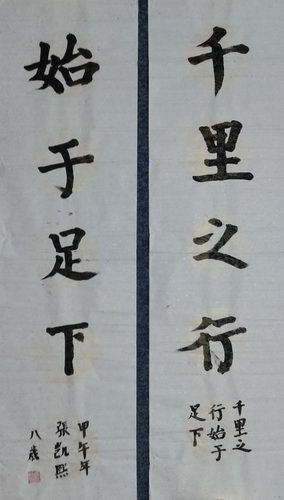 千里之行
千里之
行始于
足下
始于足下
甲午年
張凱熙
八歲